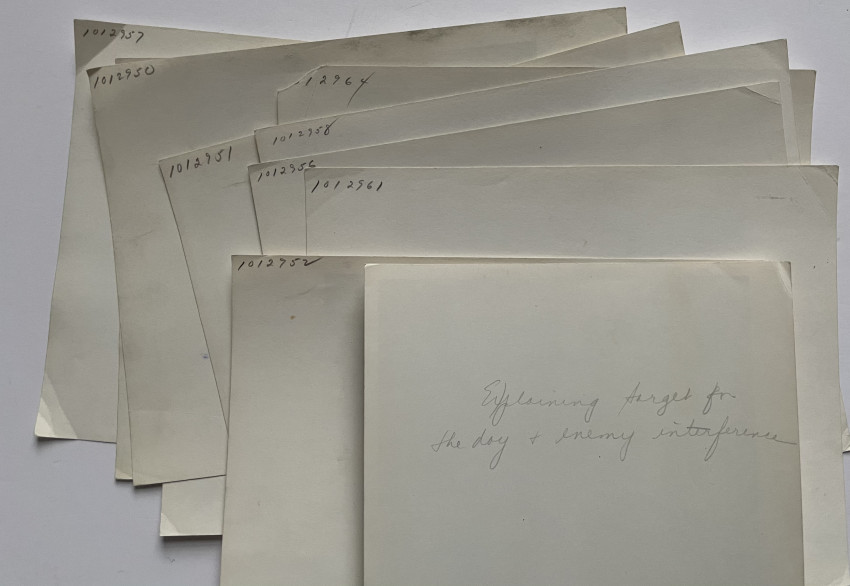 1012957
1012950
12964
1012958
1012951
1012956
1012961
1012952
Explaining target for
the day + enemy interference